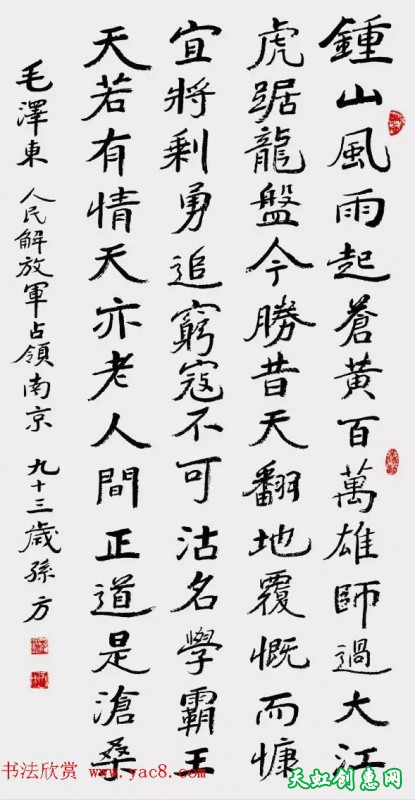 鍾山風雨起蒼黃百萬雄師過大江
虎踞龍盤今勝昔天翻地覆慨而慷
宜將剩勇追窮寇不可沽名學霸王
天若有情天亦老人間正道是滄桑
毛澤東 人民解放軍占領南京 九十三歲孫方
书法欣赏 www.yac8.com
天虹创惠网